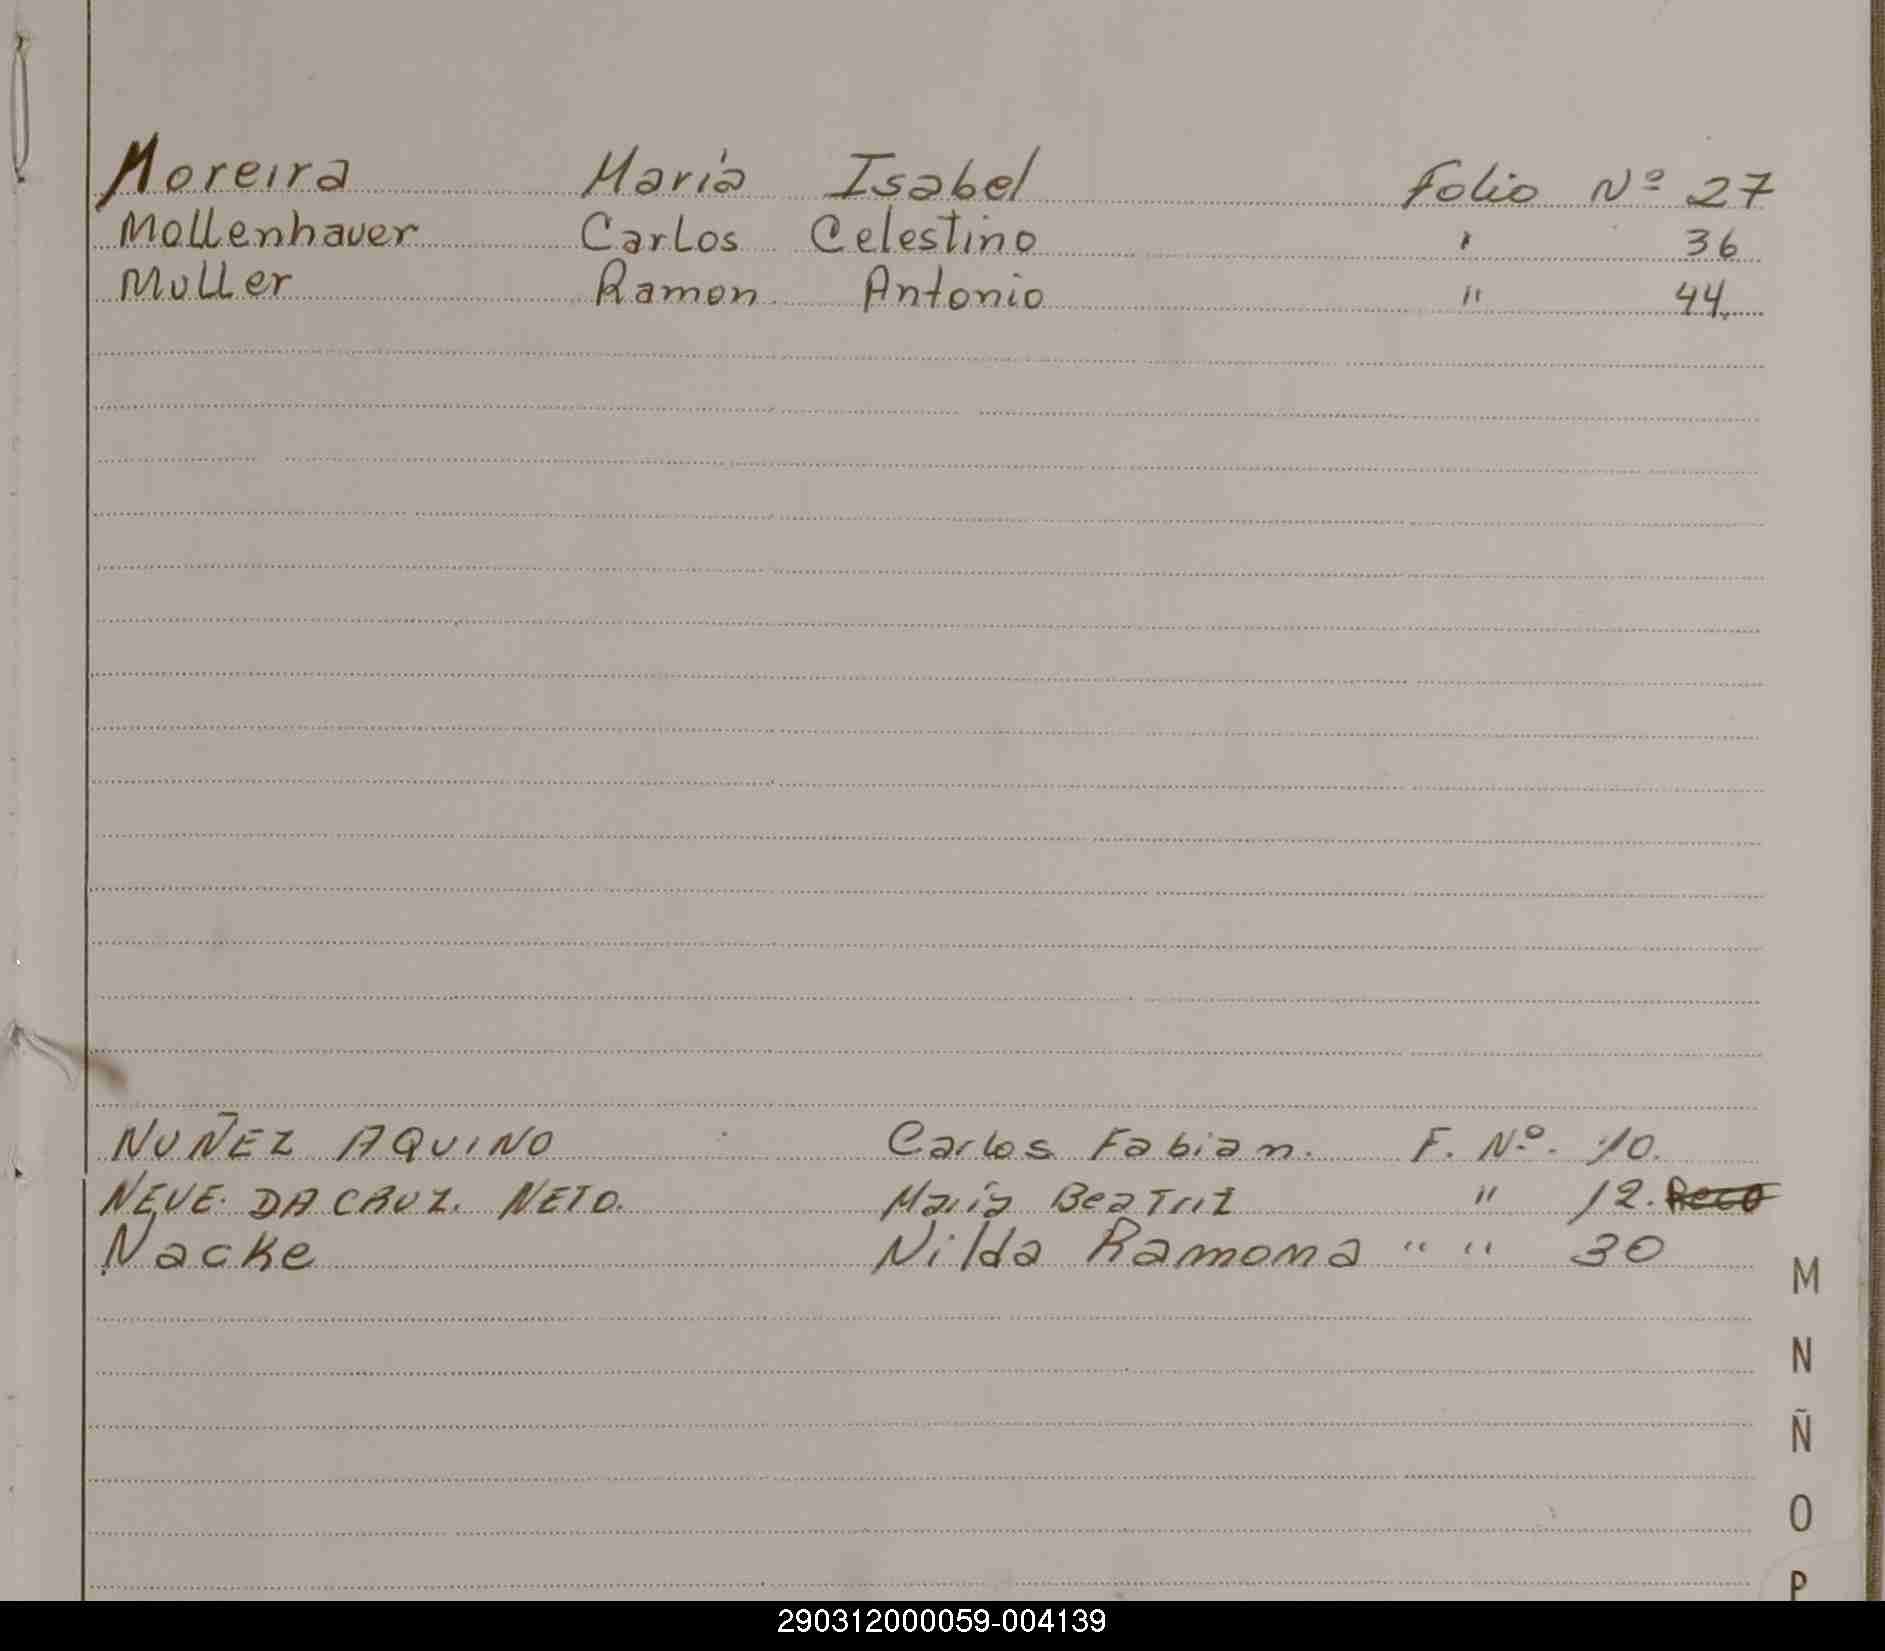 Moreira María Isabel Folio Nº 27
Mollenhauer Carlos Celestino " 36
Muller Ramon Antonio " 44.
NUÑEZ AQUINO Carlos Fabian. F. Nº. 10.
NEVE DA CRUZ. NETO. María Beatriz " 12.
Nacke Nilda Ramoma " " 30
M
N
Ñ
O
P
290312000059-004139